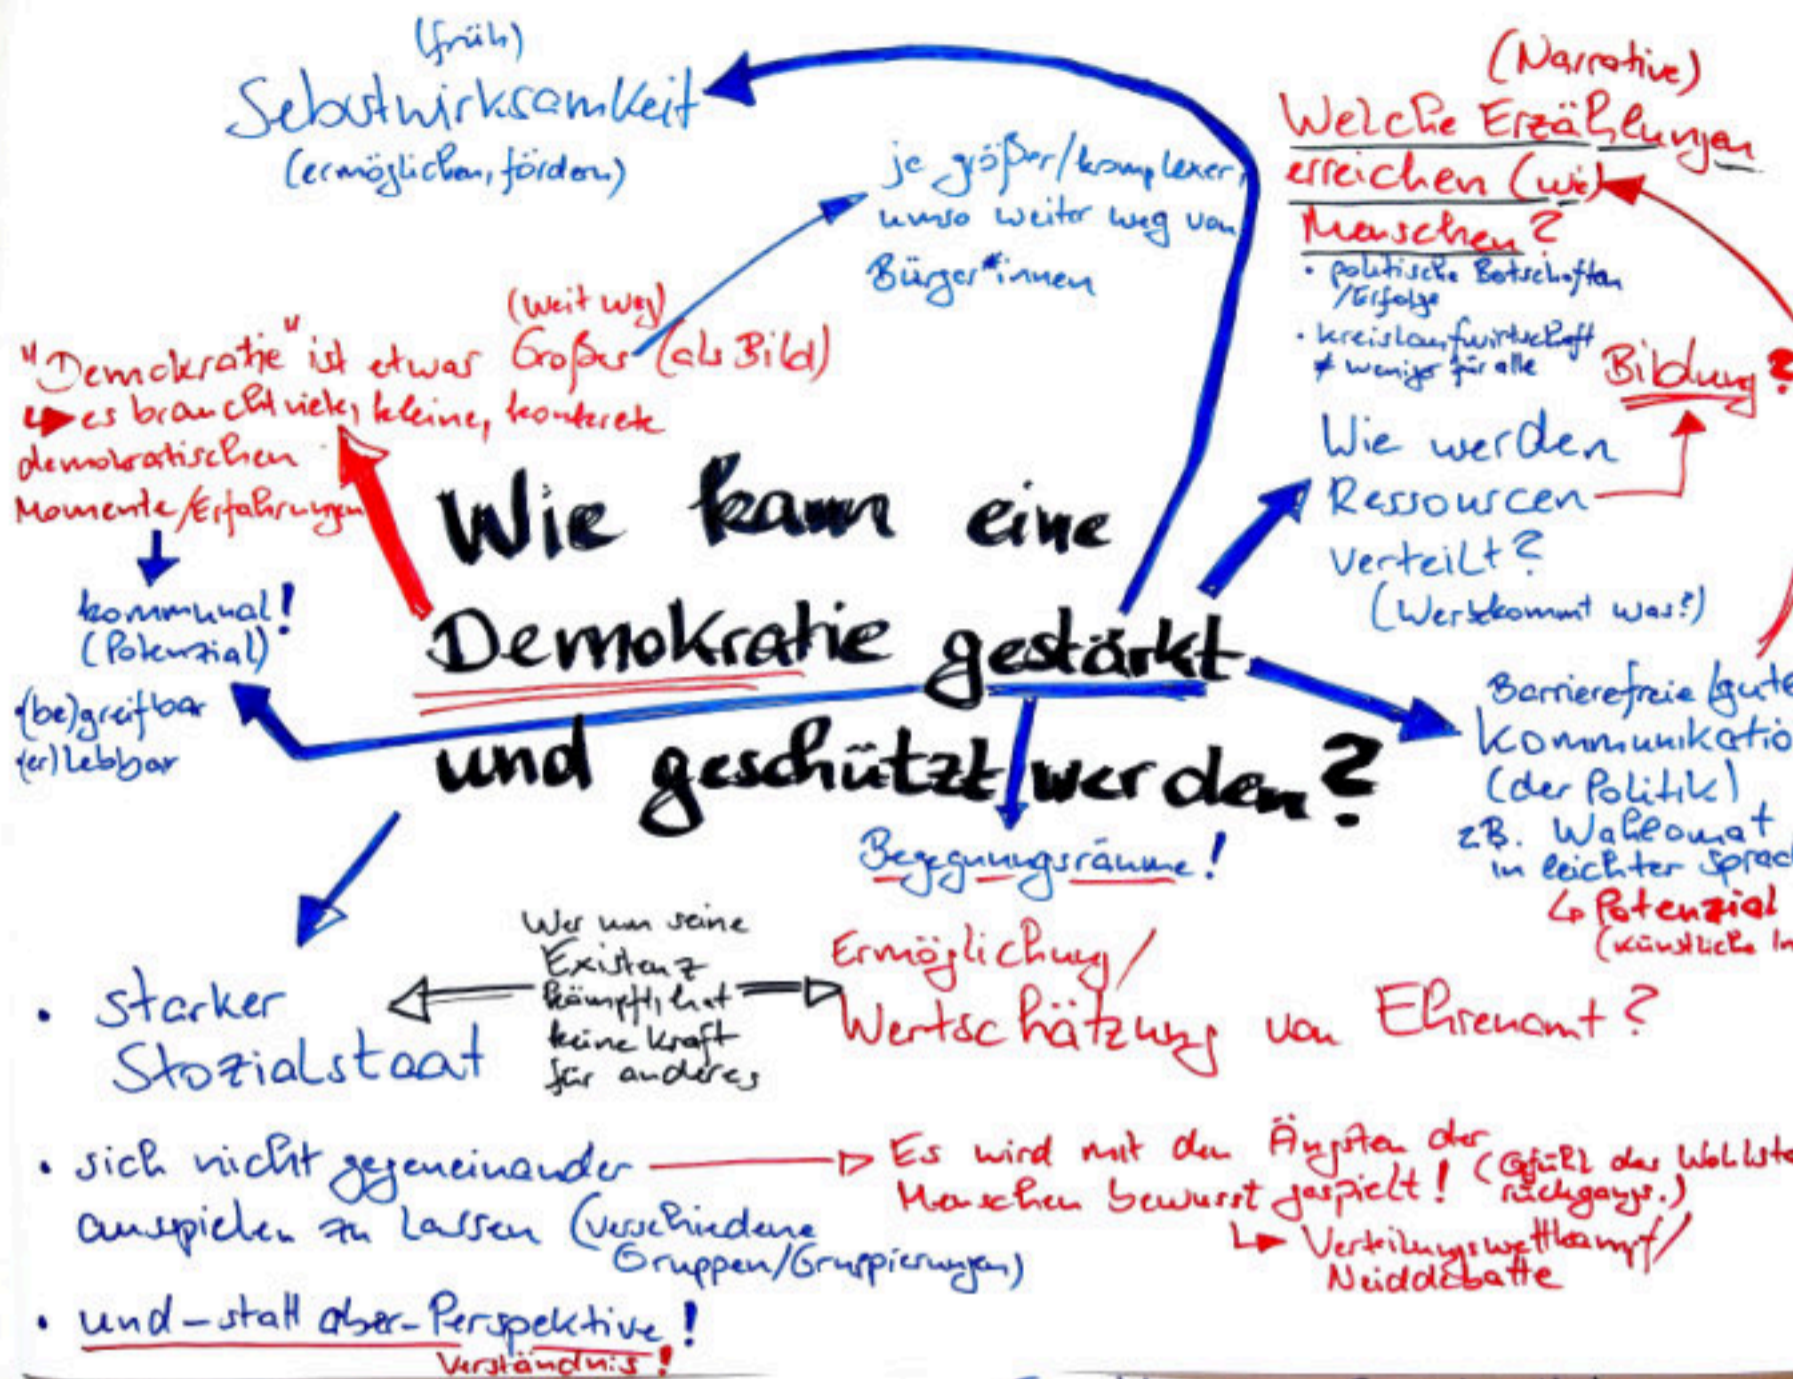 (früh)
Selbstwirksamkeit
(ermöglichen, fördern)
je größer/komplexer,
umso weiter weg von
Bürger*innen
(Narrative)
Welche Erzählungen
erreichen (wie)
Menschen?
• politische Botschaften
/Erfolge
• Kreislaufwirtschaft
≠ weniger für alle
Bildung?
(weit weg)
"Demokratie" ist etwas Großes (als Bild)
↳ es braucht viele, kleine, konkrete
demokratischen
Momente/Erfahrungen
kommunal!
(Potenzial)
(be)greifbar
(er)lebbar
Wie kann eine
Demokratie gestärkt
und geschützt werden?
Wie werden
Ressourcen
verteilt?
(Wer bekommt was?)
Barrierefreie/gute
Kommunikatio
(der Politik)
z.B. Wahlomat
in leichter Sprac
↳ Potenzial
(Künstliche In
Begegnungsräume!
• starker
Stozialstaat
Wer um seine
Existenz
kämpft, hat
keine Kraft
für anderes
Ermöglichung/
Wertschätzung von Ehrenamt?
• sich nicht gegeneinander
ausspielen zu lassen (verschiedene
Gruppen/Gruppierungen)
Es wird mit den Ängsten der
Menschen bewusst gespielt! (Gefühl des Wohlsta
rückgangs.)
↳ Verteilungswettkampf/
Neiddebatte
• und-statt aber-Perspektive!
Verständnis!